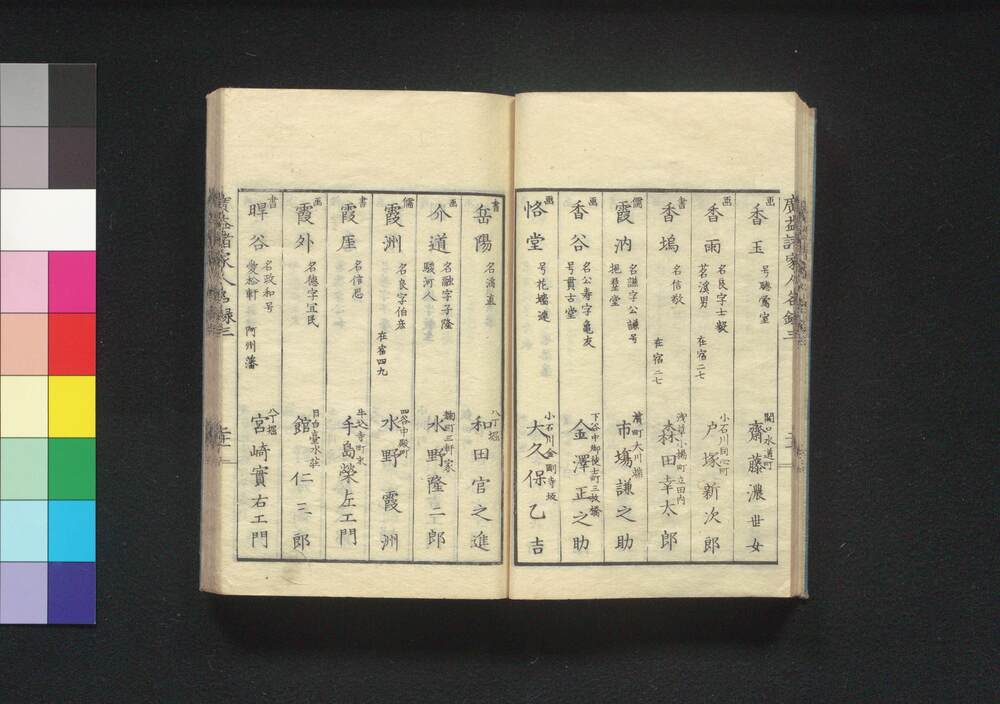 画 香玉 号聴鶯室 関口水道町 齋藤濃世女
画 香雨 名良字士毅 茗溪男 在宿二七 小石川同心町 戸塚新次郎
書 香塢 名信敬 在宿二七 浅草小揚町立田内 森田幸太郎
儒 霞汭 名謙字公謙号 挹翠堂 濱町大川端 市塲謙之助
画 香谷 名公寿字亀友 号貫古堂 下谷中御徒士町三枚橋 金澤正之助
画 恪堂 号花塢逸 小石川金剛寺坂 大久保乙吉
書 岳陽 名清直 八丁堀 和田官之進
画 介道 名融字子隆 駿河人 麹町三軒家 水野隆二郎
儒 霞洲 名良字伯彦 在宿四九 四谷中殿町 水野霞洲
書 霞厓 名信思 牛込寺町東 手島榮左エ門
画 霞外 名徳字宜民 目白臺水荘 館仁三郎
書 睅谷 名政和号 愛松軒 阿州藩 八丁堀 宮崎實右エ門
廣益諸家人名録三